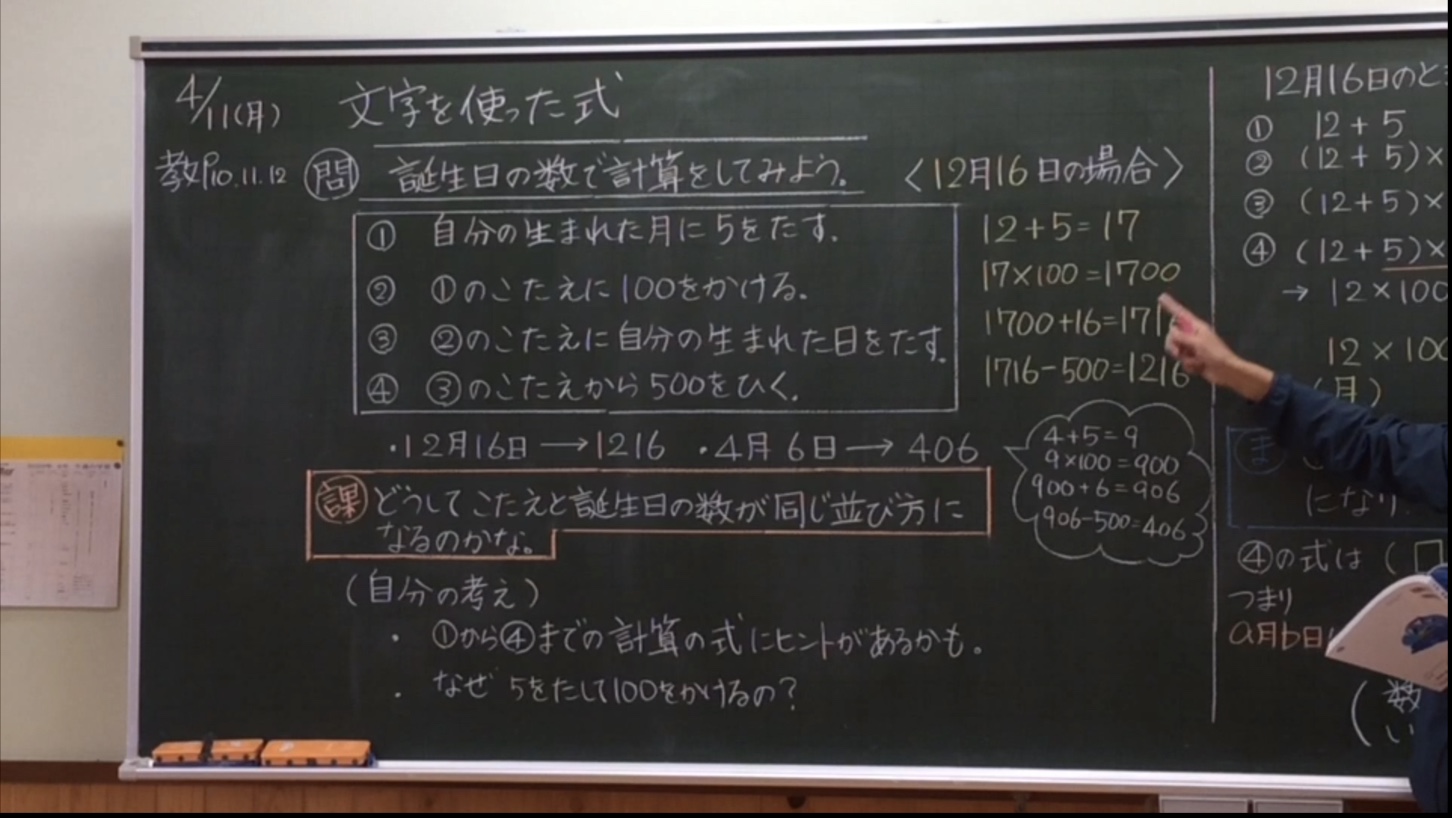 4/11(月) 文字を使った式
教P10.11.12 問 誕生日の数で計算をしてみよう。
① 自分の生まれた月に5をたす.
② ①のこたえに100をかける.
③ ②のこたえに自分の生まれた日をたす.
④ ③のこたえから500をひく.
〈12月16日の場合〉
12+5=17
17×100=1700
1700+16=171
1716-500=1216
・12月16日→1216 ・4月6日→406
4+5=9
9×100=900
900+6=906
906-500=406
課 どうしてこたえと誕生日の数が同じ並び方に
なるのかな。
(自分の考え)
・ ①から④までの計算の式にヒントがあるかも。
・ なぜ 5をたして100をかけるの?
12月16日のと
① 12+5
② (12+5)×
③ (12+5)×
④ (12+5)×
→ 12×100
12×100
(月)
ま
になり
④の式は(□
つまり
a月b日
(数
い